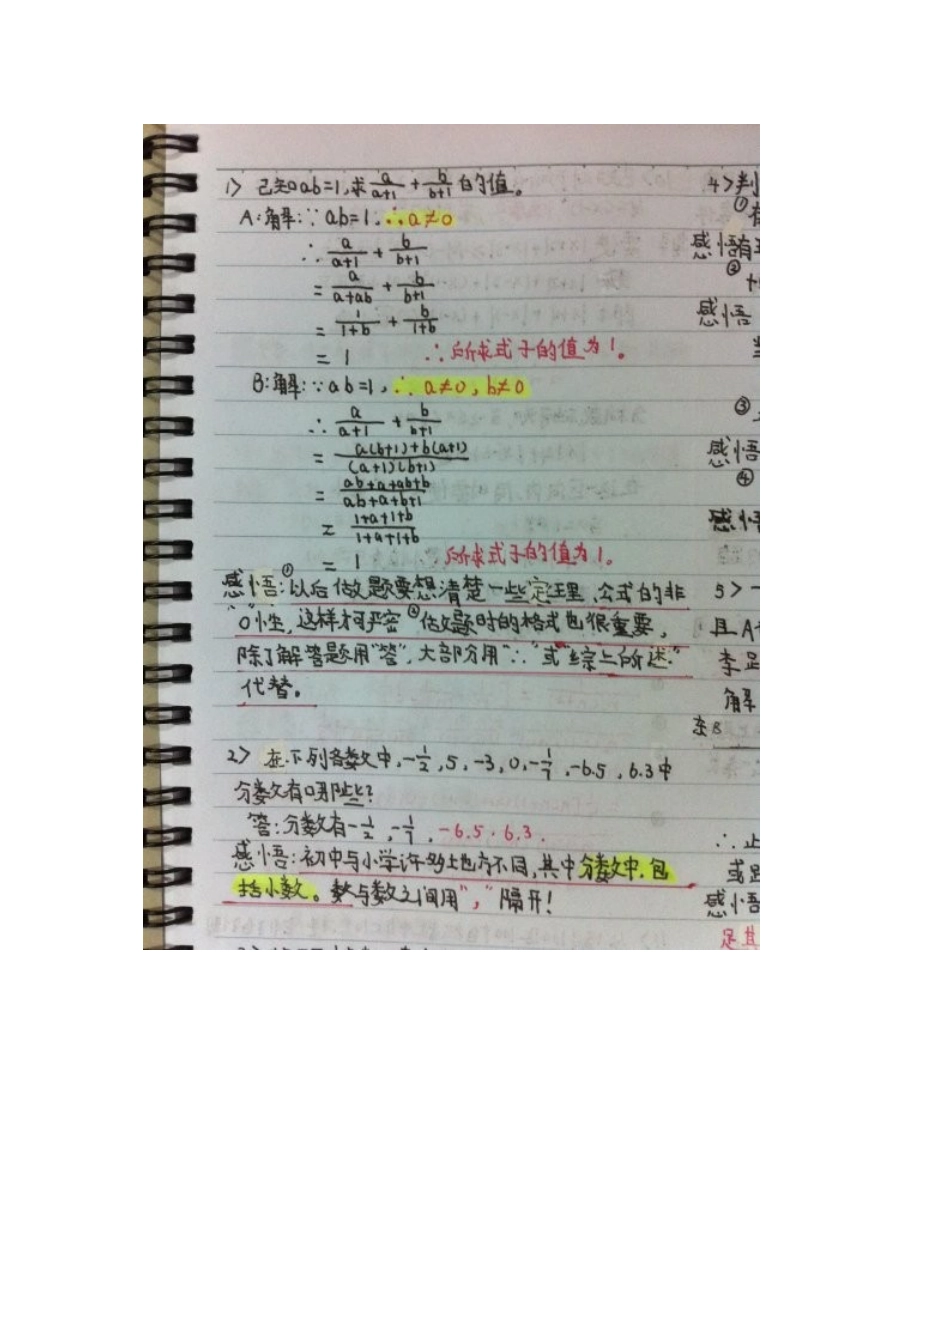 1> 已知ab=1,求a/(a+1)+b/(b+1)的值。
A:解:∵ab=1,∴a≠0
∴a/(a+1)+b/(b+1)
=a/(a+ab)+b/(b+1)
=1/(1+b)+b/(1+b)
=1 ∴所求式子的值为1。
B:解:∵ab=1,∴a≠0,b≠0
∴a/(a+1)+b/(b+1)
=(a(b+1)+b(a+1))/((a+1)(b+1))
=(ab+a+ab+b)/(ab+a+b+1)
=(1+a+1+b)/(1+a+1+b)
=1 ∴所求式子的值为1。
感悟:①以后做题要想清楚一些定理、公式的非
“0”性,这样才严密②做题时的格式也很重要,
除了解答题用“答”,大部分用“∴”或“综上所述”
代替。
2> 在下列各数中,-1/2,5,-3,0,-1/7,-6.5,6.3中
分数有哪些?
答:分数有-1/2,-1/7,-6.5,6.3.
感悟:初中与小学许多地方不同,其中分数中,包
括小数。数与数之间用“,”隔开!
4>判
①
感悟
②
感悟
③
感悟
④
感悟
5> 一
且A
李
解
东B
∴止
或
感悟
是其